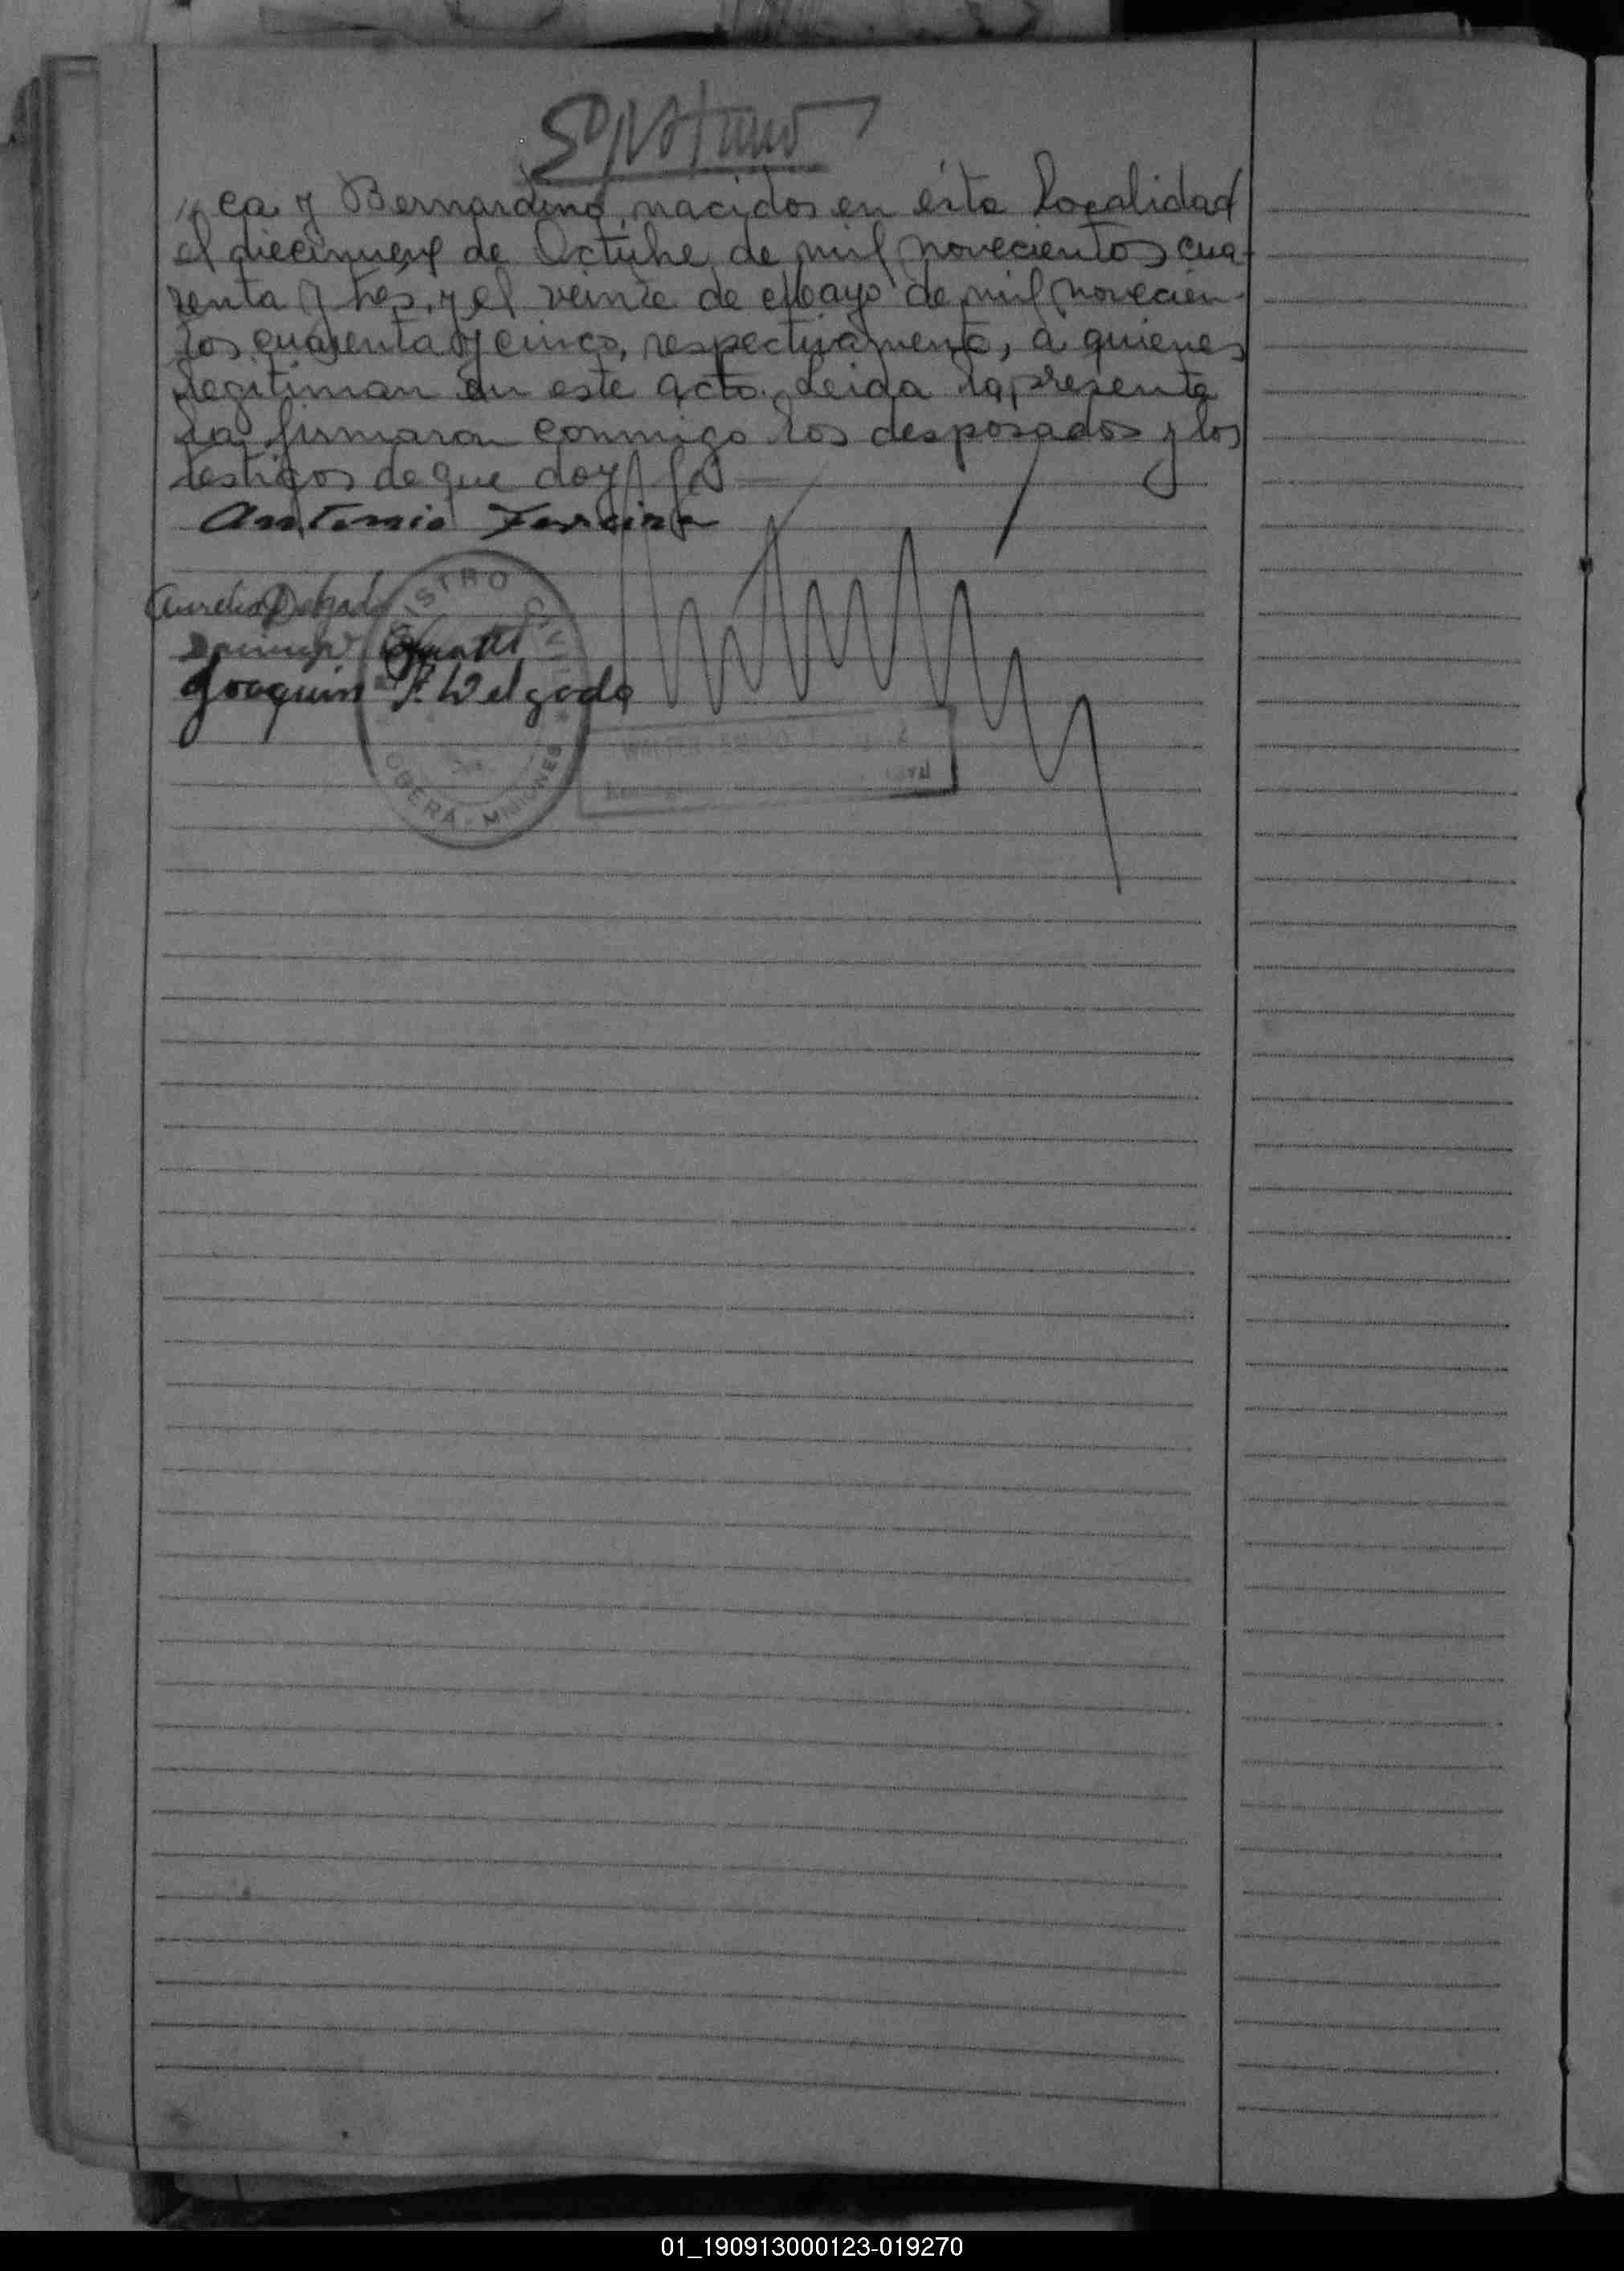 ca y Bernardino, nacidos en ésta localidad
el diecinueve de Octubre de mil novecientos cua-
renta y tres, y el veinte de Mayo de mil novecien-
tos cuarenta y cinco, respectivamente, a quienes
legitiman en este acto. Leida la presente
la firmaron conmigo los desposados y los
testigos de que doy fé
Antonio Ferreira
Aurelia Delgado
Joaquin F. Delgado
REGISTRO CIVIL
OBERÁ - MISIONES
01_190913000123-019270